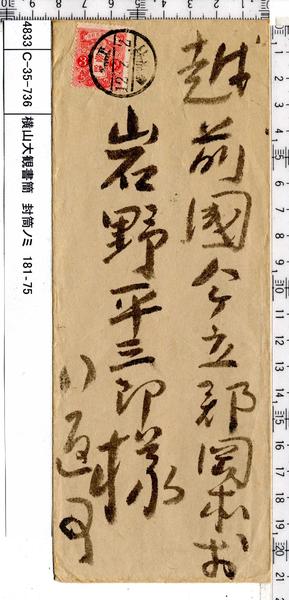 越前國今立郡岡本村
岩野平三郎様
4833 C-35-736 横山大観書簡 封筒ノミ 181-75